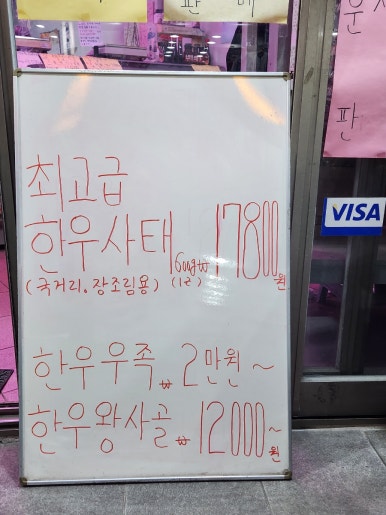 판매
판
최고급
한우사태 600g₩ 17800원
(국거리.장조림용) (1근)
VISA
한우우족 ₩ 2만원~
한우왕사골 ₩ 12000~원